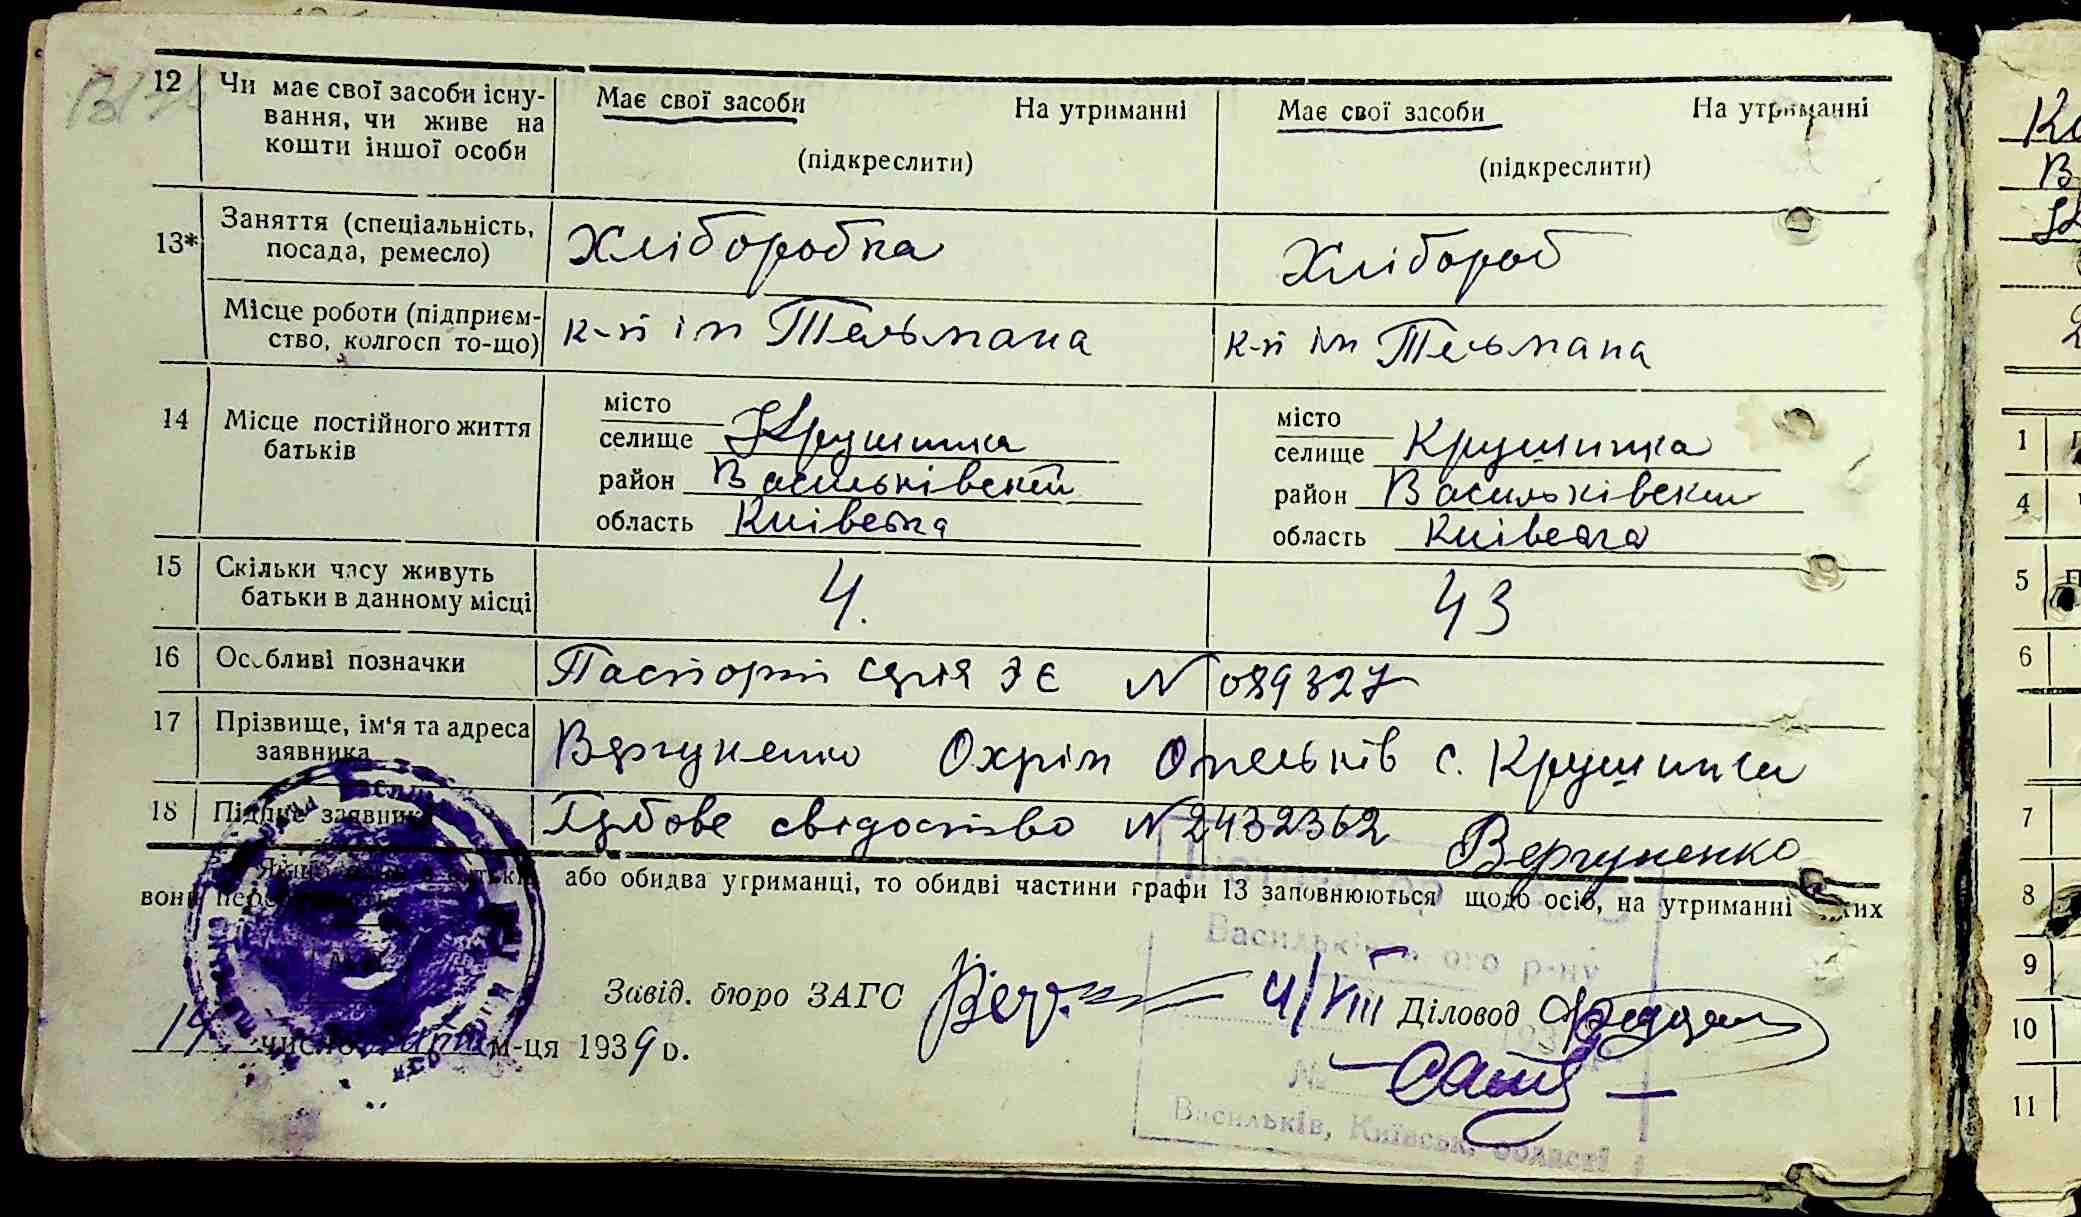 12 Чи має свої засоби існу-
вання, чи живе на
кошти іншої особи
Має свої засоби На утриманні
(підкреслити)
Має свої засоби На утриманні
(підкреслити)
13* Заняття (спеціальність,
посада, ремесло)
Хліборобка
Хлібороб
Місце роботи (підприєм-
ство, колгосп то-що)
к-п ім Тельмана
к-п ім Тельмана
14 Місце постійного життя
батьків
місто
селище Крушинка
район Васильківский
область Київська
місто
селище Крушинка
район Васильківский
область Київська
15 Скільки часу живуть
батьки в данному місці
4.
43
16 Особливі позначки
Паспорт серія ЭЄ № 089327
17 Прізвище, ім'я та адреса
заявника
Вергуненко Охрім Омельків с. Крушинка
18 Підпис заявника
Шлюбове свідоцтво № 2432362 Вергуненко
або обидва утриманці, то обидві частини графи 13 заповнюються щодо осіб, на утриманні яких
вони
Васильківського р-ну
Завід. бюро ЗАГС 4/VIII Діловод
14 число м-ця 1939 р.
193
№
Васильків, Київськ. області
1
4
5
6
7
8
9
10
11